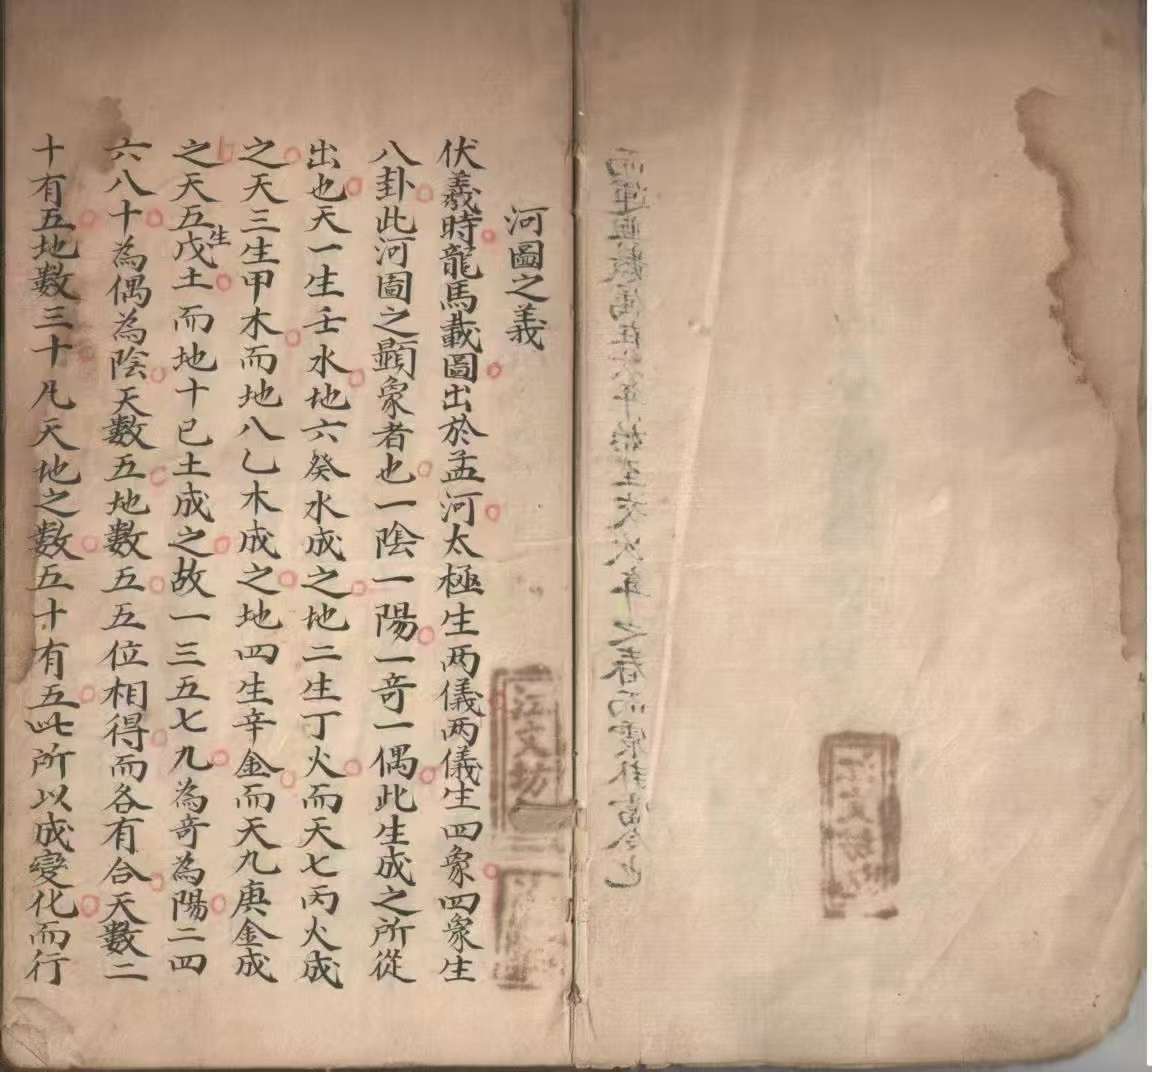 江文坊
河圖之義
伏羲時龍馬載圖出於孟河太極生两儀两儀生四象四象生
八卦此河圖之顯象者也一陰一陽一奇一偶此生成之所從
出也天一生壬水地六癸水成之地二生丁火而天七丙火成
之天三生甲木而地八乙木成之地四生辛金而天九庚金成
之天五生戊土而地十已土成之故一三五七九為奇為陽二四
六八十為偶為陰天數五地數五五位相得而各有合天數二
十有五地數三十凡天地之數五十有五此所以成變化而行